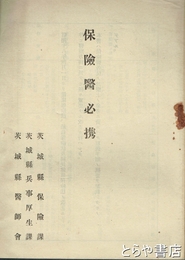 保險醫必携
茨城縣保險課
茨城縣兵事厚生課
茨城縣醫師會
とらや書店